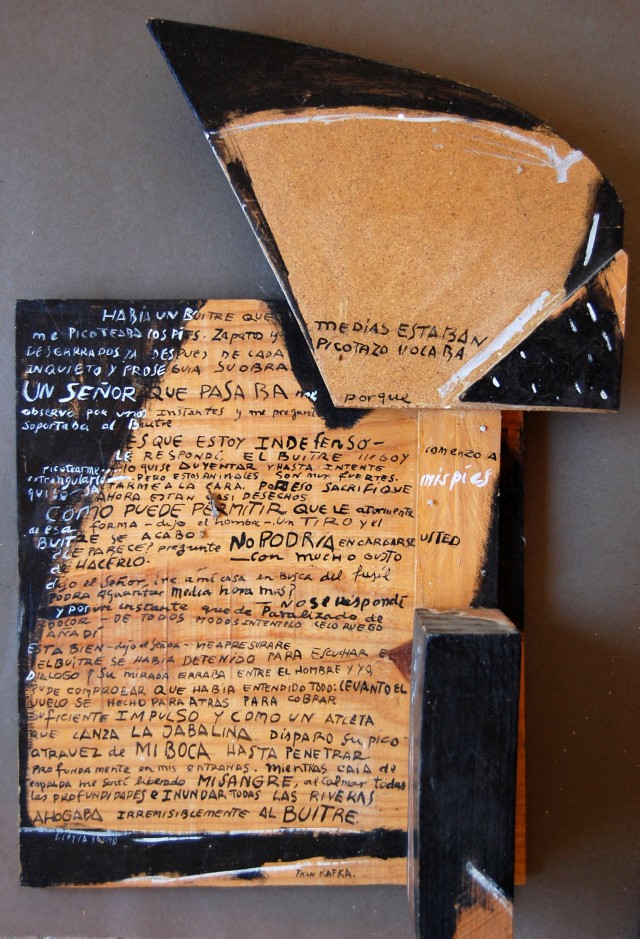 HABIA UN BUITRE QUE
me PICOTEABA LOS PIES. Zapatos y medias ESTABAN
DESGARRADOS YA DESPUES DE CADA PICOTAZO VOLABA
INQUIETO Y PROSEGUIA SU OBRA.
UN SEÑOR QUE PASABA me
observo por unos instantes y me pregunto porque
soportaba al Buitre
ES QUE ESTOY INDEFENSO-
LE RESPONDI, EL BUITRE llegoy comenzo A
picotearme... lo quise AUYENTAR Y HASTA INTENTE
estrangularlo PERO ESTOS ANIMALES SON muy FUERTES. mis pies
quiso SALTARME A LA CARA. POR ESO SACRIFIQUE
AHORA ESTAN CASI DESECHOS
COMO PUEDE PERMITIR QUE LE atormente
de esa forma - dijo el hombre - Un TIRO y el
BUITRE SE ACABO?
¿LE PARECE? pregunte NO PODRIA ENCARGARSE USTED
de HACERLO. - con mucho GUSTO
dijo el Señor, ire a mi casa en BUSCA del fusil
PODRA AGUANTAR Media hora mas?
- NO SE Respondi
y por un instante que de Paralizado de
DOLOR - DE TODOS MODOS INTENTELO SELO RUEGO
AÑADI
ESTA BIEN - dijo el Señor - ME APRESURARE
EL BUITRE SE HABIA DETENIDO PARA ESCUCHAR EL
DIALOGO Y SU MIRADA ERRABA ENTRE EL HOMBRE Y YO,
PUDE COMPROBAR QUE HABIA ENTENDIDO TODO: LEVANTO EL
VUELO SE HECHO PARA ATRAS PARA COBRAR
SUFICIENTE IMPULSO Y COMO UN ATLETA
QUE LANZA LA JABALINA DISPARO SU pico
ATRAVEZ de MI BOCA HASTA PENETRAR
PROFUNDAMENTE en mis entrañas. mientras caia de
espalda me senti liberado MI SANGRE, al colmar todas
las PROFUNDIDADES e INUNDAR TODAS LAS RIVERAS
AHOGABA IRREMISIBLEMENTE AL BUITRE.
FRAN KAFKA.